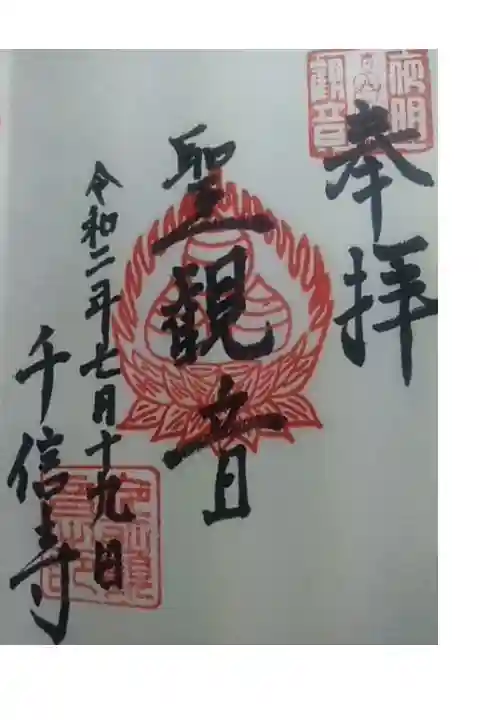 奉拝
聖観音
令和二年七月十九日
千信寺
観音